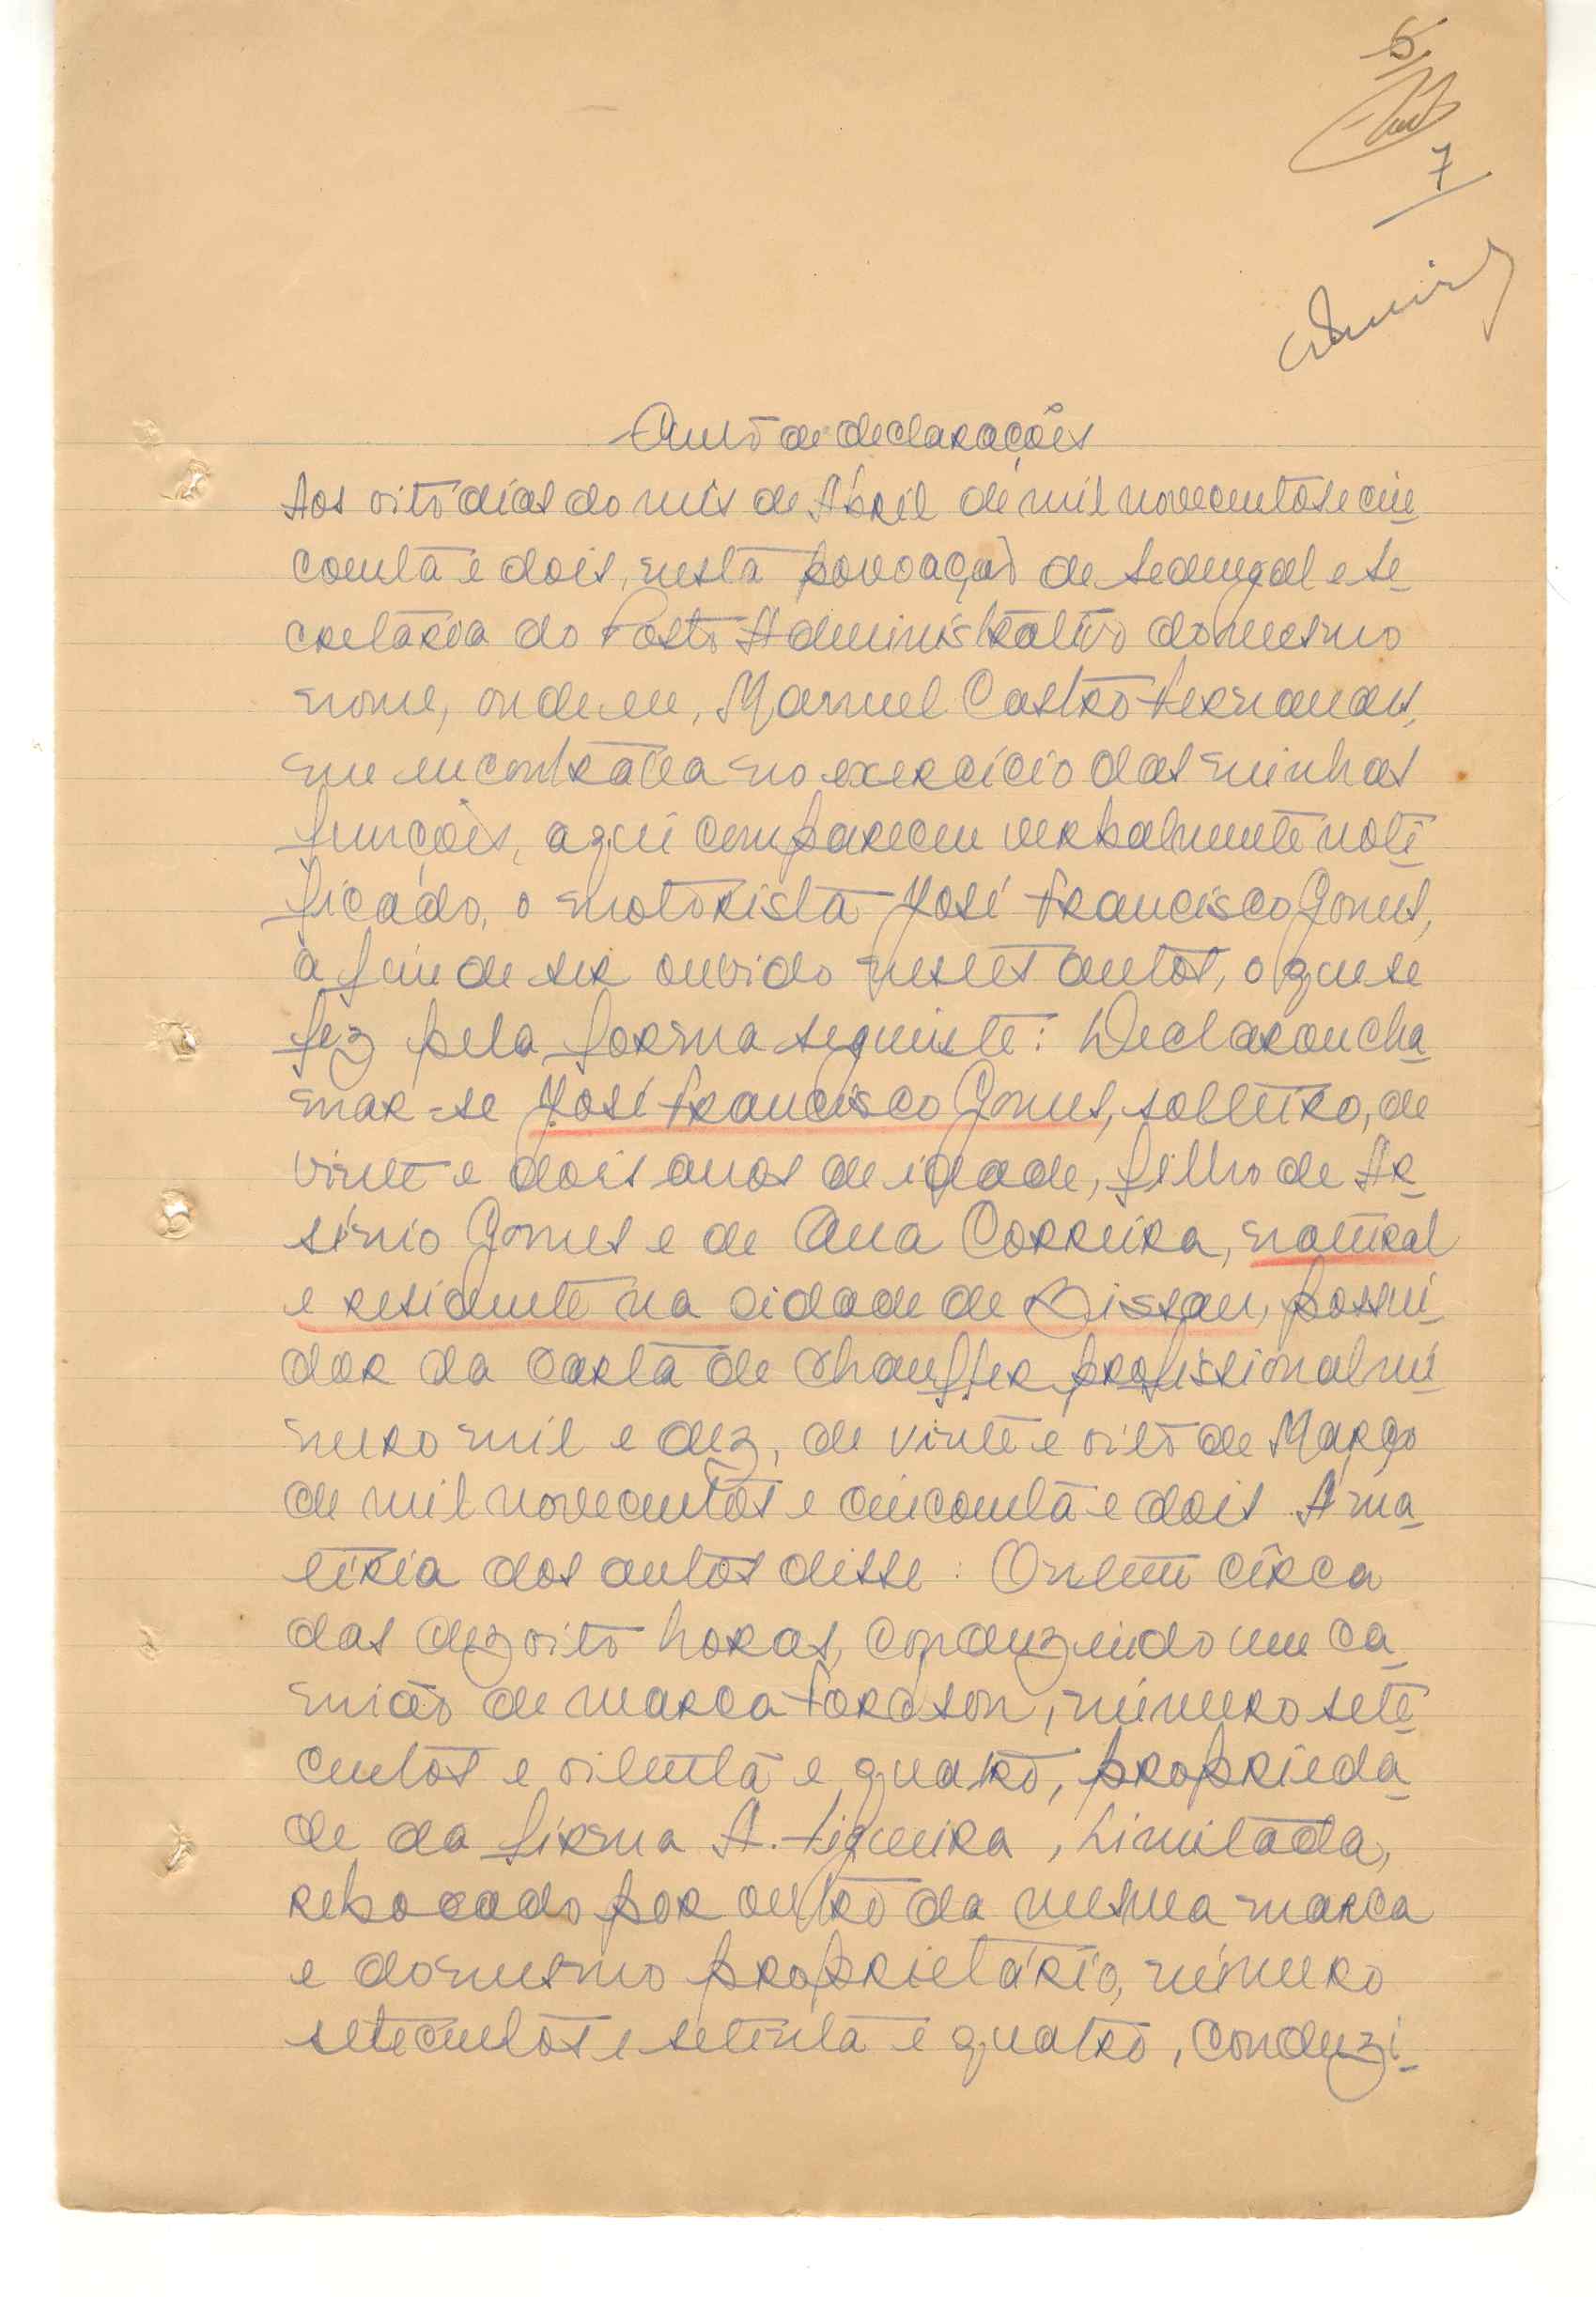 5
7
Auto de declarações
Aos oito dias do mês de Abril de mil novecentos e cin-
coenta e dois, nesta povoação de Sedengal e Se-
cretaria do Posto Administrativo do mesmo
nome, onde eu, Manuel Castro Fernandes,
me encontrava no exercício das minhas
funções, aqui compareceu verbalmente noti-
ficado, o motorista José Francisco Gomes,
a fim de ser ouvido nestes autos, o que se
fez pela forma seguinte: Declarou cha-
mar-se José Francisco Gomes, solteiro, de
vinte e dois anos de idade, filho de Ar-
sénio Gomes e de Ana Correira, natural
e residente na cidade de Bissau, possui-
dor da carta de chauffer profissional nú-
mero mil e dez, de vinte e oito de Março
de mil novecentos e cincoenta e dois. A ma-
téria dos autos disse: Ontem cêrca
das dezoito horas, conduzindo um ca-
mião de marca Fordson, número sete-
centos e oitenta e quatro, proprieda-
de da firma A. Figueira, Limitada,
rebocado por outro da mesma marca
e do mesmo proprietário, número
setecentos e setenta e quatro, conduzi-